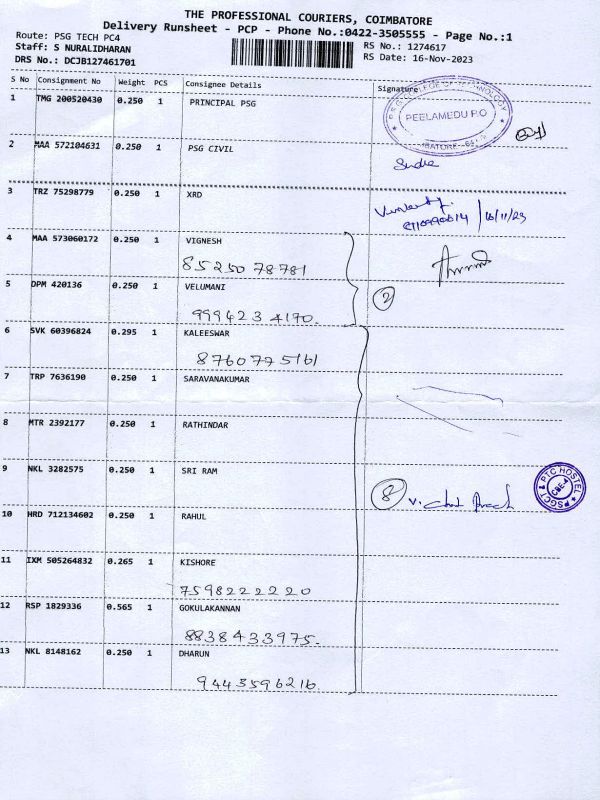 THE PROFESSIONAL COURIERS, COIMBATORE
Delivery Runsheet - PCP - Phone No.:0422-3505555 - Page No.:1
Route: PSG TECH PC4
Staff: S NURALIDHARAN
DRS No.: DCJB127461701
RS No.: 1274617
RS Date: 16-Nov-2023
S No Consignment No Weight PCS Consignee Details Signature
1 TMG 200520430 0.250 1 PRINCIPAL PSG
PSG COLLEGE OF TECHNOLOGY
PEELAMEDU P.O
2 MAA 572104631 0.250 1 PSG CIVIL
3 TRZ 75298779 0.250 1 XRD
16/11/23
4 MAA 573060172 0.250 1 VIGNESH
8525078781
5 DPM 420136 0.250 1 VELUMANI
2
9994234170.
6 SVK 60396824 0.295 1 KALEESWAR
8760775161
7 TRP 7636190 0.250 1 SARAVANAKUMAR
8 MTR 2392177 0.250 1 RATHINDAR
9 NKL 3282575 0.250 1 SRI RAM
8
PSGCT & PTC HOSTEL
CBE-4
10 HRD 712134602 0.250 1 RAHUL
11 IXM 505264832 0.265 1 KISHORE
7598222220
12 RSP 1829336 0.565 1 GOKULAKANNAN
8838433975.
13 NKL 8148162 0.250 1 DHARUN
9443596216.